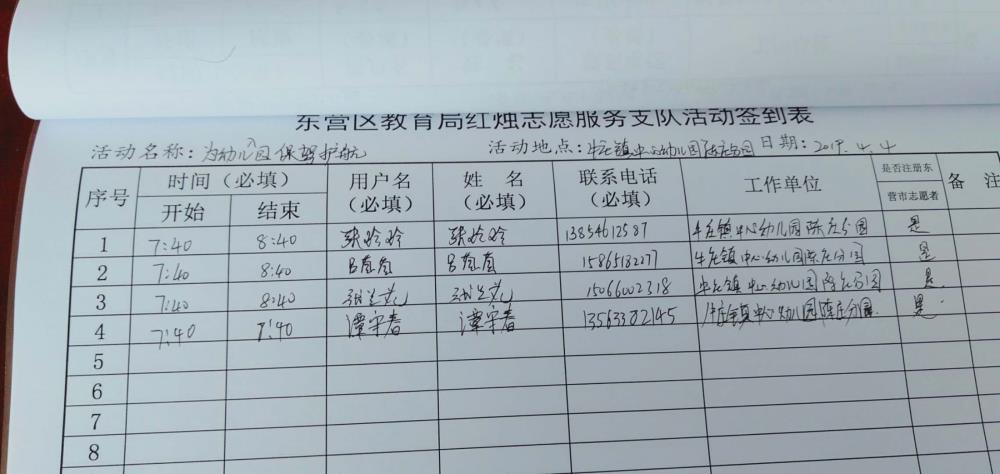 东营区教育局红烛志愿服务支队活动签到表
活动名称：为幼儿园保驾护航 活动地点：牛庄镇中心幼儿园陈庄分园 日期：2019.4.4
序号 时间（必填） 用户名（必填） 姓 名（必填） 联系电话（必填） 工作单位 是否注册东营市志愿者 备 注
开始 结束
1 7:40 8:40 张玲玲 张玲玲 13854612587 牛庄镇中心幼儿园陈庄分园 是
2 7:40 8:40 吕苗苗 吕苗苗 15865182277 牛庄镇中心幼儿园陈庄分园 是
3 7:40 8:40 15066002318 牛庄镇中心幼儿园陈庄分园 是
4 7:40 7:40 谭守春 谭守春 13563382145 牛庄镇中心幼儿园陈庄分园 是
5
6
7
8